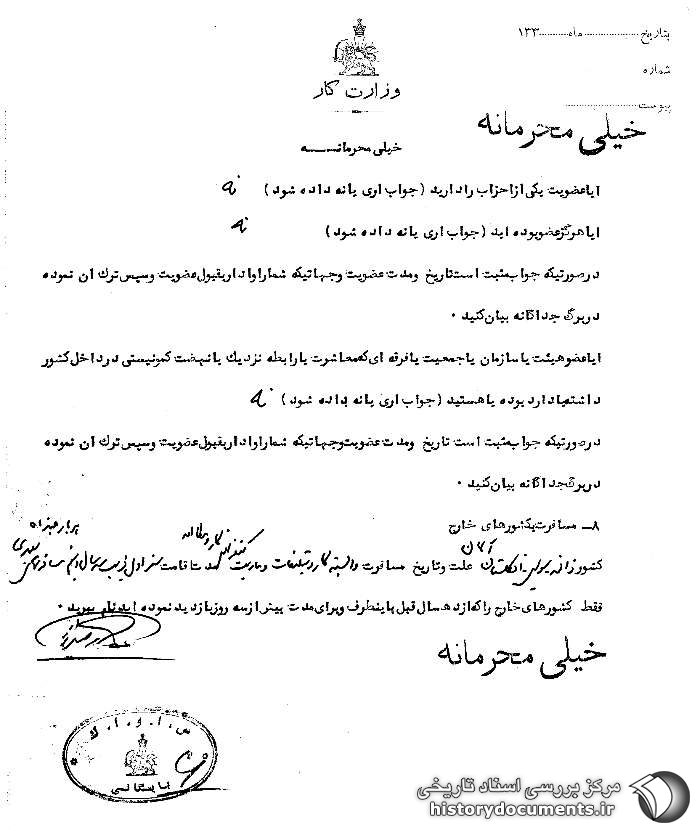 بتاریخ ........ ماه ........ ۱۳۳
شماره
پیوست ........
وزارت کار
خیلی محرمانه
خیلی محرمانـــه
ایا عضویت یکی از احزاب را دارید (جواب اری یا نه داده شود) نه
ایا هرگز عضو بوده اید (جواب اری یا نه داده شود) نه
در صورتیکه جواب مثبت است تاریخ و مدت عضویت و جهاتیکه شما را وادار بقبول عضویت و سپس ترک ان نموده
در برگ جداگانه بیان کنید .
ایا عضو هیئت یا سازمان یا جمعیت یا فرقه ای که معاشرت یا رابطه نزدیك با نهضت کمونیستی در داخل کشور
داشته یا دارد بوده یا هستید (جواب اری یا نه داده شود) نه
در صورتیکه جواب مثبت است تاریخ و مدت عضویت و جهاتیکه شما را وادار بقبول عضویت و سپس ترک ان نموده
در برگ جداگانه بیان کنید .
۸ــ مسافرت بکشورهای خارج
کشور فرانسه سویس انگلستان آلمان علت و تاریخ مسافرت وابسته کار و تبلیغات مدت اقامت سفر اول
فقط کشورهای خارج را که از ده سال قبل باینطرف و برای مدت بیش از سه روز بازدید نموده اید نام ببرید .
خیلی محرمانه
س . ا . و . ا . ك
بایگانی
مرکز بررسی اسناد تاریخی
historydocuments.ir